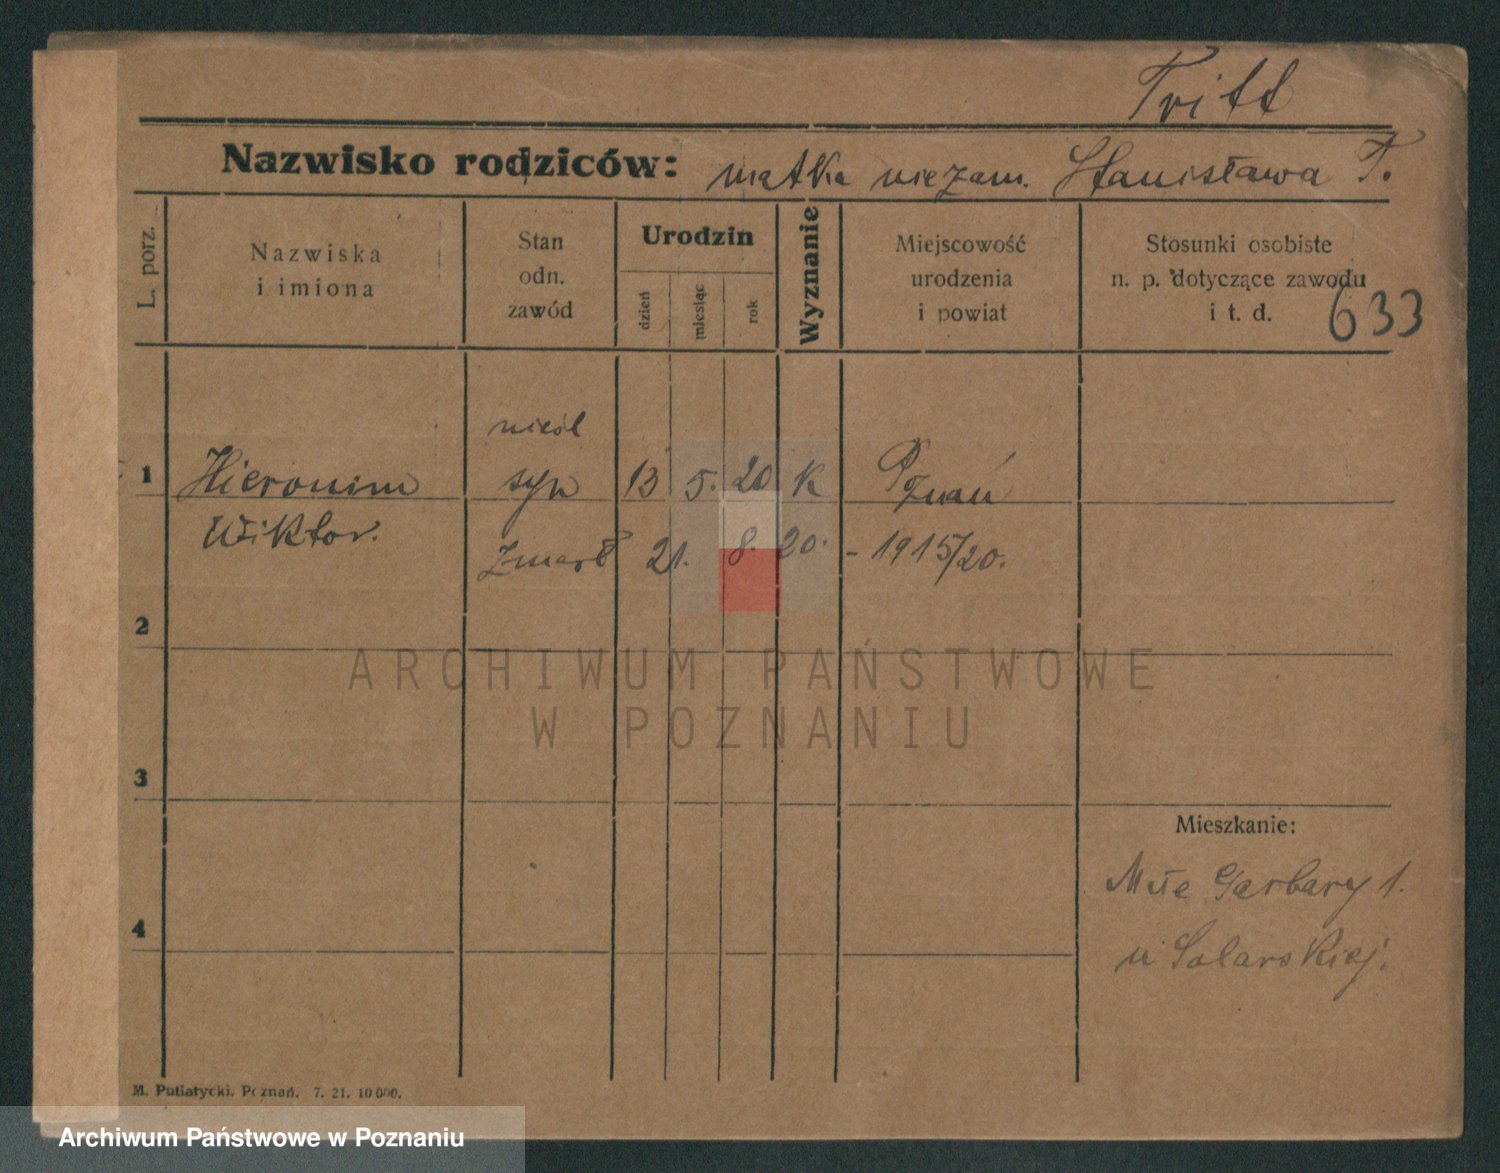 Tritt
Nazwisko rodziców: matka niezam. Stanisława T.
L. porz.
Nazwiska
i imiona
Stan
odn.
zawód
Urodzin
dzień
miesiąc
rok
Wyznanie
Miejscowość
urodzenia
i powiat
Stosunki osobiste
n. p. dotyczące zawodu
i t. d.
633
nieśl
1 Hieronim syn 13 5. 20 K Poznań
Wiktor. zmarł 21. 8. 20. - 1915/20.
2
3
4
Mieszkanie:
Młe Garbary 1.
u Solarskiej.
ARCHIWUM PAŃSTWOWE
W POZNANIU
M. Putiatycki. Poznań. 7. 21. 10000.
Archiwum Państwowe w Poznaniu